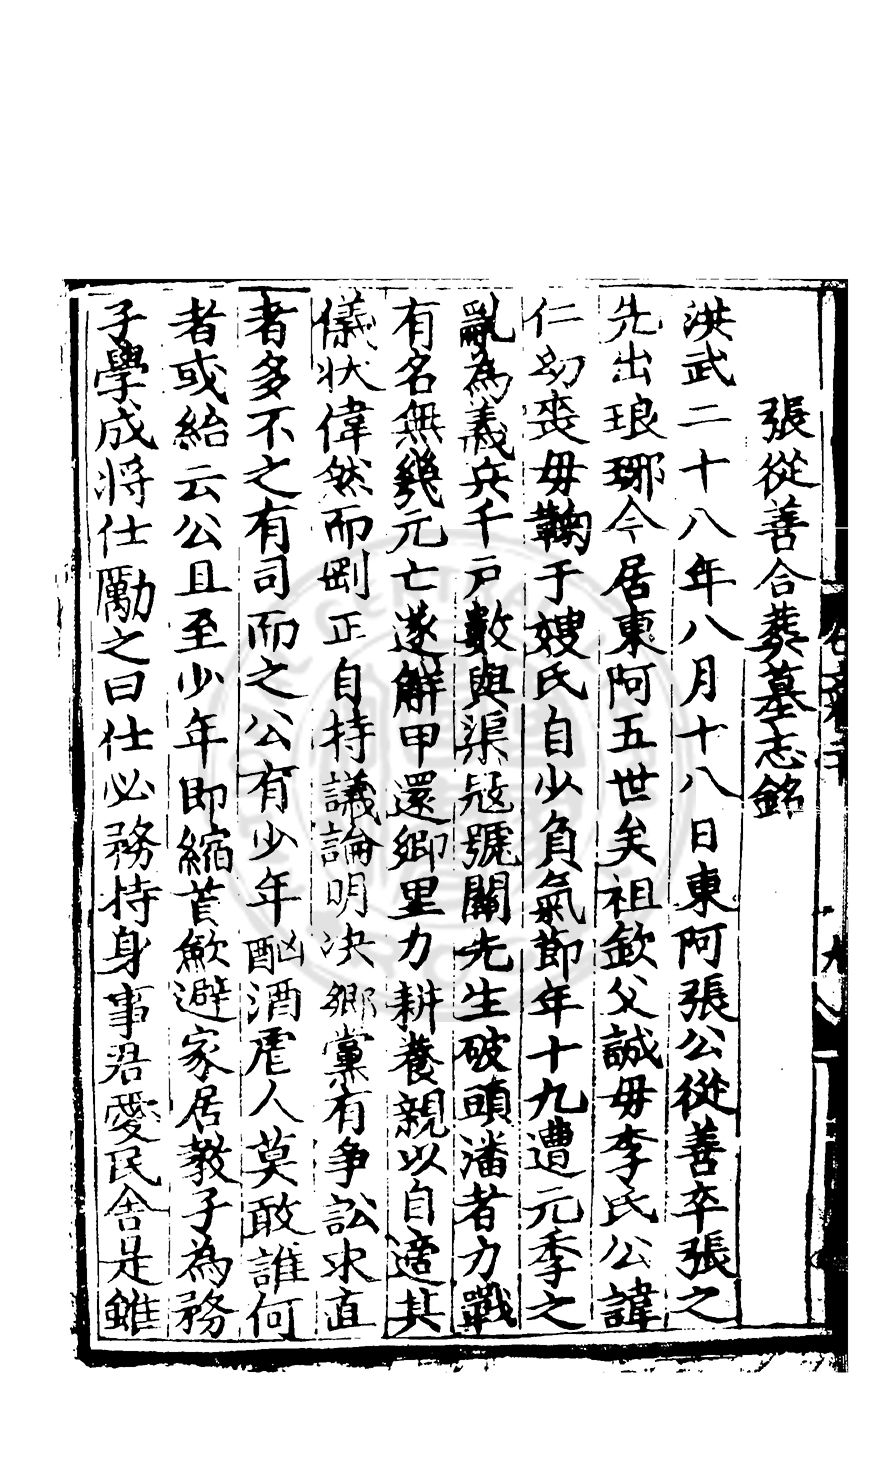 張從善合葬墓志銘
洪武二十八年八月十八日東阿張公從善卒張之
先出琅琊今居東阿五世矣祖欽父誠母李氏公諱
仁幼喪母鞠于嫂氏自少負氣節年十九遭元季之
亂為義兵千戶數與渠冦號關先生破頭潘者力戰
有名無幾元亡遂解甲還鄉里力耕養親以自適其
儀狀偉然而剛正自持議論明决鄉黨有争訟求直
者多不之有司而之公有少年酗酒虐人莫敢誰何
者或紿云公且至少年即縮首歛避家居教子為務
子學成將仕勵之曰仕必務持身事君愛民舍是雖